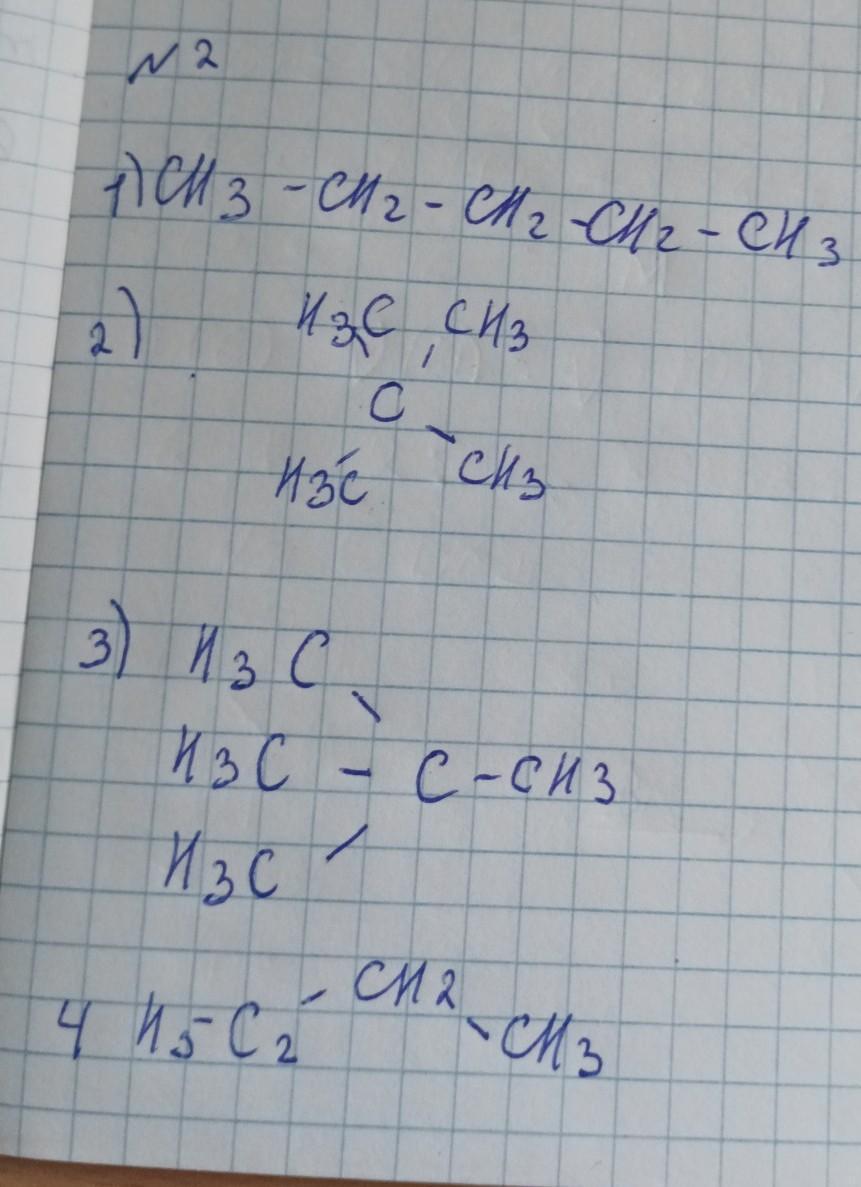 № 2
1) CH3 - CH2 - CH2 - CH2 - CH3
2) H3C CH3
C
H3C CH3
3) H3C
H3C - C - CH3
H3C
4 H5-C2 - CH2 - CH3